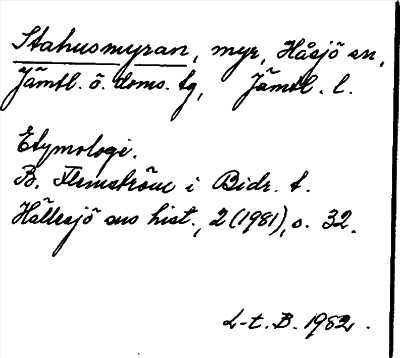 Stahusmyran, myr, Håsjö sn,
Jämtl. ö. doms. tg, Jämtl. l.
Etymologi.
B. Flemström i Bidr. t.
Hällesjö sns hist., 2 (1981), s. 32.
L-t. B. 1982.